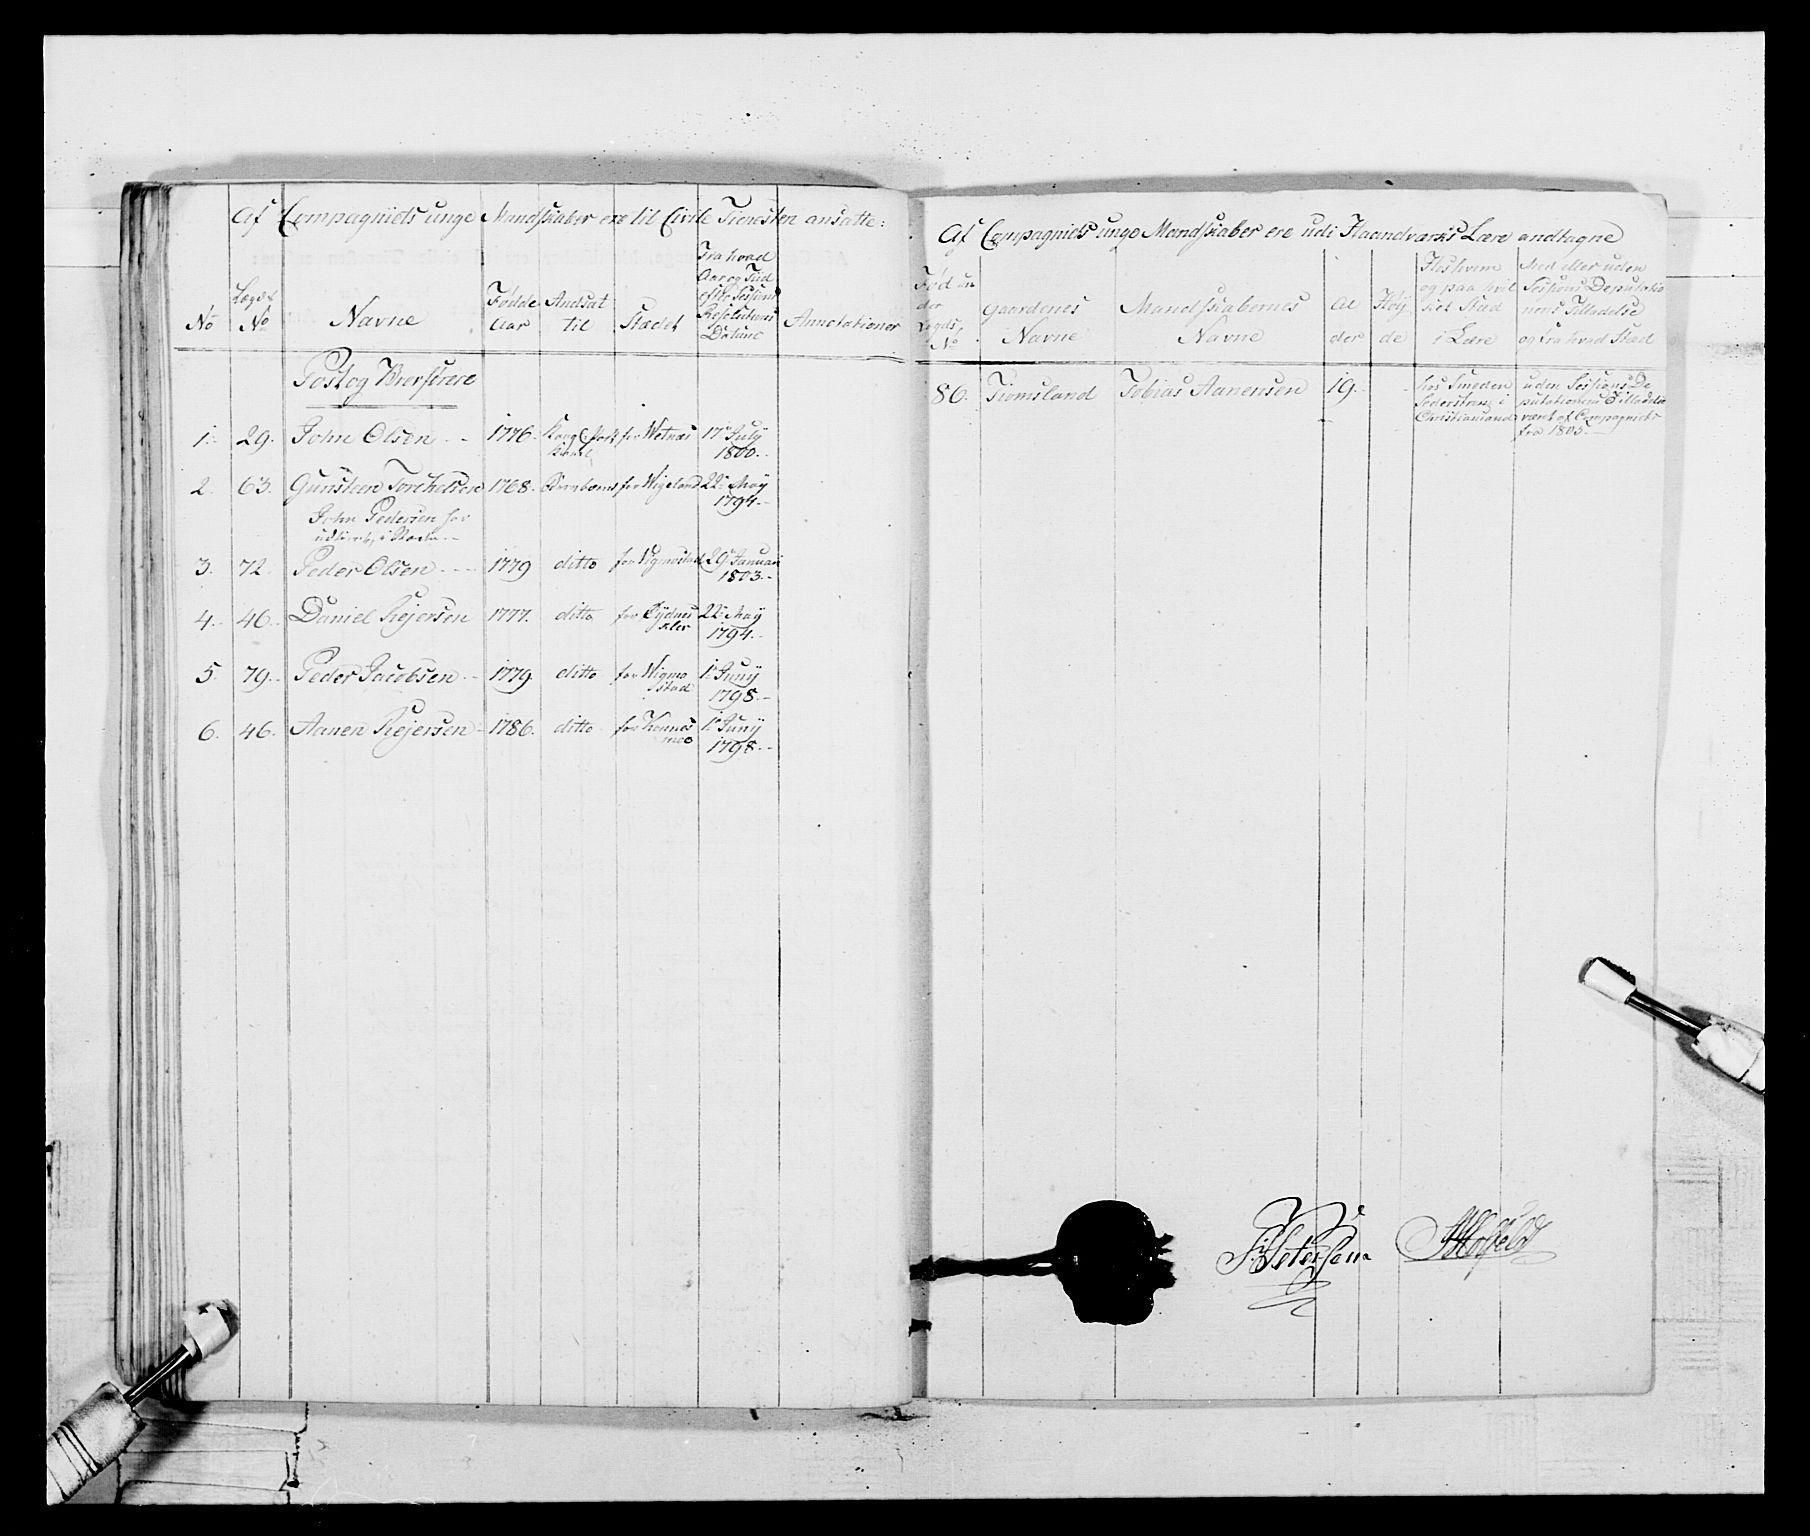 Af Compagniets unge Mandskaber ere til Civile Tienesten ansatte:
No | Lægds No | Navne | Fødde Aar | Andsat til | Stædet | Fra hvad Aar og Tiid efter Sessions Resolutions Datum | Annotationer
Post og Brevførere
1. 29. John Olsen 1776. Kongl. Post for Wetnæs 17de July 1800.
2. 63. Gunsteen Torchelsen 1768. for Wigeland 22de May 1794.
John Pedersen
3. 72. Peder Olsen 1779 ditto for Vigmostad 29de Januari 1803.
4. 46. Daniel Rejersen 1777. ditto for 22de May 1794.
5 79. Peder Jacobsen 1779. ditto for Wigmostad 1te Juny 1798.
6. 46. Aanen Rejersen 1786. ditto for Konnesmoe 1te Juny 1798.
Af Compagniets unge Mandskaber ere udi Haandværks Lære andtagne
Fød under Lægds No | Gaardenes Navne | Mandskabernes Navne | Alder | Høyde | Hos hvem og paa hvilket Stæd i Lære | Med eller uden Sessions Deputationens Tilladelse og fra hvad Stæd
86. Tiomsland Tobias Aanensen 19. hos Smeden i Christiansand uden Sessions Deputationens Tilladelse været af Compagniets fra 1805.
Petersen